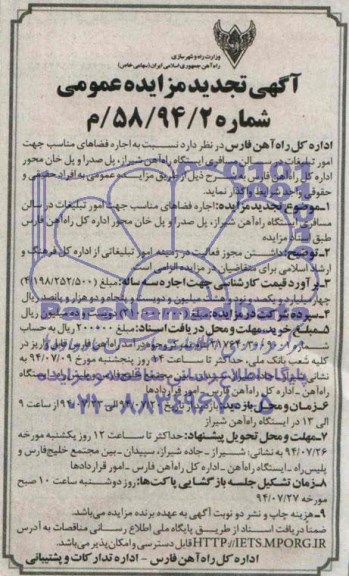 وزارت راه و شهرسازی
راه‌آهن جمهوری اسلامی ایران (سهامی خاص)
آگهی تجدید مزایده عمومی
شماره ۵۸/۹۴/۲/م
اداره کل راه‌آهن فارس در نظر دارد نسبت به اجاره فضاهای مناسب جهت
امور تبلیغات در سالن مسافری ایستگاه راه‌آهن شیراز، پل صدرا و پل خان محور
اداره کل راه‌آهن فارس به شرح ذیل از طریق مزایده عمومی به افراد حقیقی و
حقوقی واجد شرایط واگذار نماید.
۱ـ موضوع تجدید مزایده: اجاره فضاهای مناسب جهت امور تبلیغات در سالن
مسافری ایستگاه راه‌آهن شیراز، پل صدرا و پل خان محور اداره کل راه‌آهن فارس
طبق اسناد مزایده
۲ـ توضیح: داشتن مجوز فعالیت در زمینه امور تبلیغاتی از اداره کل فرهنگ و
ارشاد اسلامی برای متقاضیان در مزایده الزامی است
۳ـ برآورد قیمت کارشناسی جهت اجاره سه ساله: مبلغ (۴/۱۹۸/۲۵۲/۵۰۰)
چهار میلیارد و یکصد و نود و هشت میلیون و دویست و پنجاه و دو هزار و پانصد ریال
۴ـ سپرده شرکت در مزایده: مبلغ
۵ـ مبلغ خرید، مهلت و محل دریافت اسناد: مبلغ ۲۰۰۰۰۰ ریال به حساب
کلیه شعب بانک ملی، حداکثر تا ساعت ۱۲ روز پنجشنبه مورخ ۹۴/۰۷/۰۹ به
راه‌آهن ـ اداره کل راه‌آهن فارس ـ امور قراردادها
۶ـ زمان و محل بازدید:
الی ۱۳ در ایستگاه راه‌آهن شیراز
۷ـ مهلت و محل تحویل پیشنهاد: حداکثر تا ساعت ۱۲ روز یکشنبه مورخه
۹۴/۰۷/۲۶ به نشانی: شیراز ـ جاده شیراز، سپیدان ـ بین مجتمع خلیج‌فارس و
پلیس راه ـ ایستگاه راه‌آهن ـ اداره کل راه‌آهن فارس ـ امور قراردادها
۸ـ زمان تشکیل جلسه بازگشایی پاکت‌ها: روز دوشنبه ساعت ۱۰ صبح
مورخه ۹۴/۰۷/۲۷
۹ـ هزینه چاپ و نشر دو نوبت آگهی به عهده برنده مزایده می‌باشد.
ضمناً دریافت اسناد از طریق پایگاه ملی اطلاع رسانی مناقصات به آدرس
HTTP://IETS.MPORG.IR قابل دسترسی و امکان‌پذیر می‌باشد.
اداره کل راه‌آهن فارس - اداره تدارکات و پشتیبانی
پایگاه اطلاع رسانی مناقصه و مزایده
۰۲۱-۸۸۳۴۹۶۷۰-۵